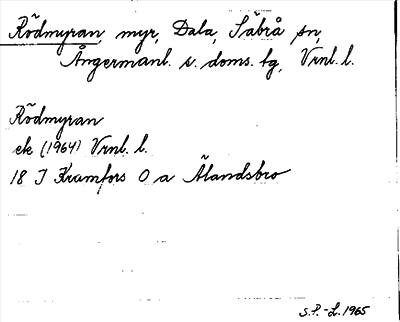 Rödmyran, myr, Dala, Säbrå sn,
Ångermanl. s. doms. tg, Vrnl. l.
Rödmyran
ek (1964) Vrnl. l.
18 I Kramfors 0 a Älandsbro
S.P.-L. 1965